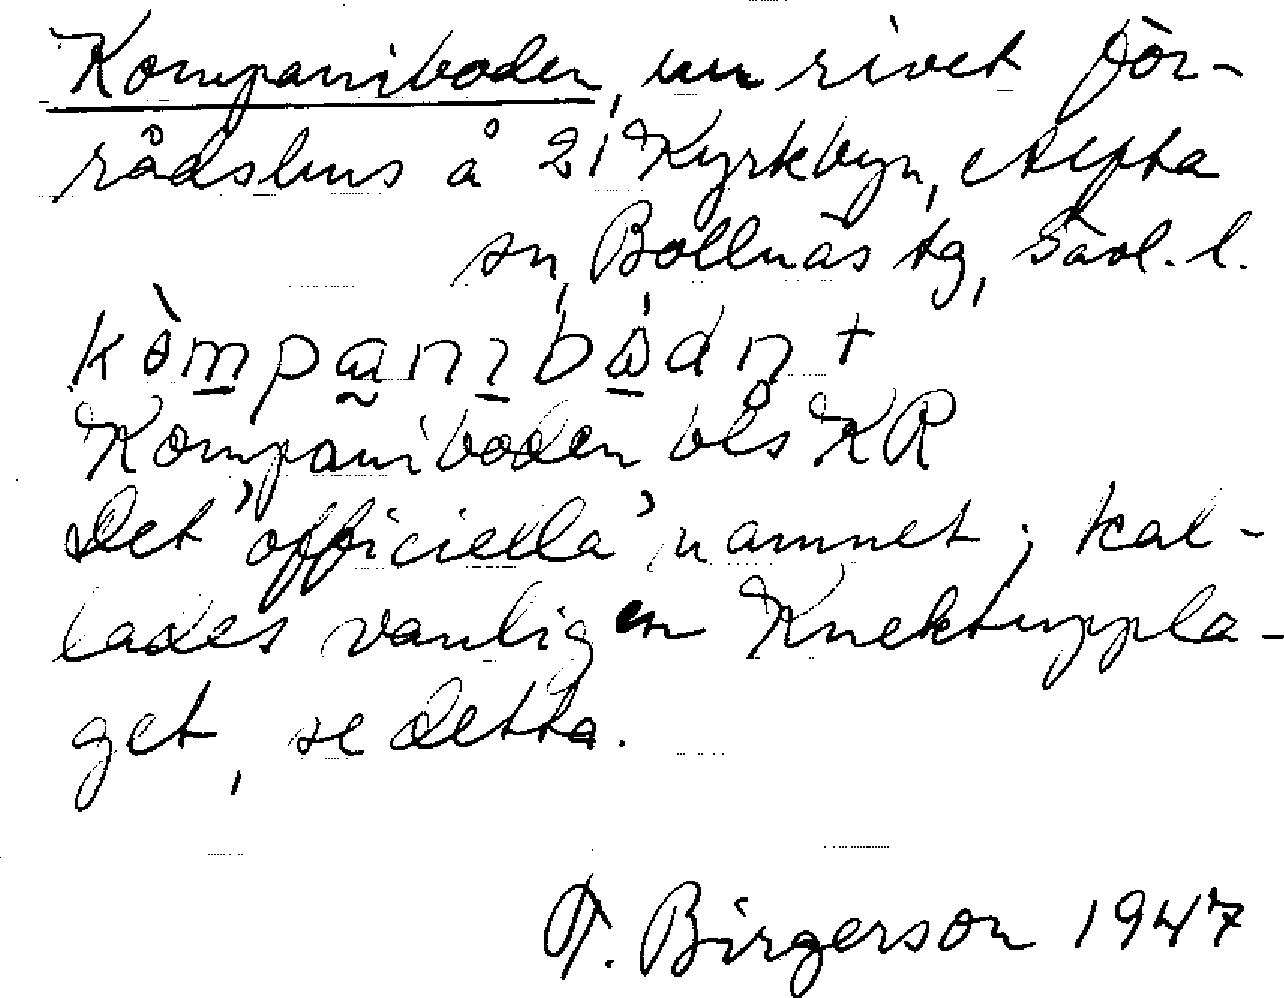 Kompaniboden, nu rivet för-
rådshus å 21 Kyrkbyn, Alfta
sn, Bollnäs tg, Gävl. l.
kòmpanıbodn +
Kompaniboden bls KR
Det "officiella" namnet; kal-
lades vanligen Knektuppla-
get, se detta.
T. Birgerson 1947